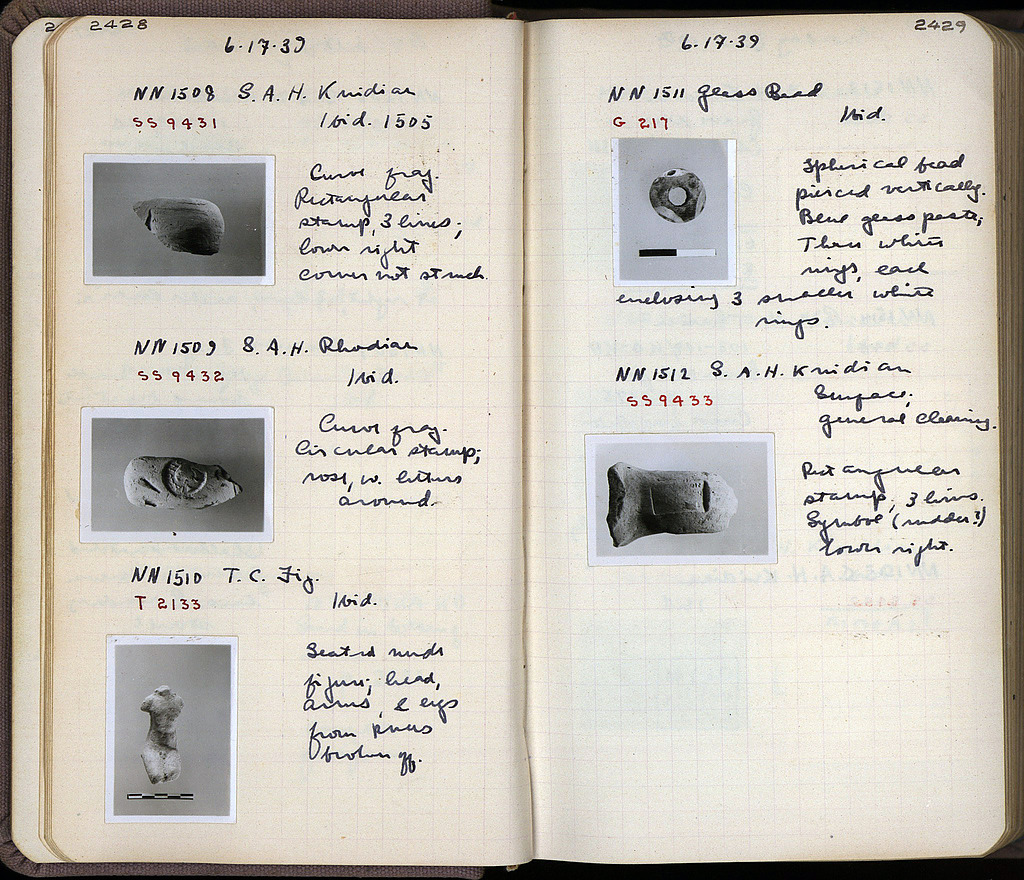 2428
6·17·39
NN 1508 S. A. H. Knidian
SS 9431 Ibid. 1505
Curve frag.
Rectangular
stamp, 3 lines;
lower right
corner not struck.
NN 1509 S. A. H. Rhodian
SS 9432 Ibid.
Curve frag.
Circular stamp;
rose, w. letters
around.
NN 1510 T. C. Fig.
T 2133 Ibid.
Seated nude
figure; head,
arms, legs
from knees
broken off.
2429
6·17·39
NN 1511 Glass Bead
G 217 Ibid.
Spherical bead
pierced vertically.
Blue glass paste;
Three white
rings, each
enclosing 3 smaller white
rings.
NN 1512 S. A. H. Knidian
SS 9433 Surface;
general cleaning.
Rectangular
stamp, 3 lines.
Symbol (rudder?)
lower right.